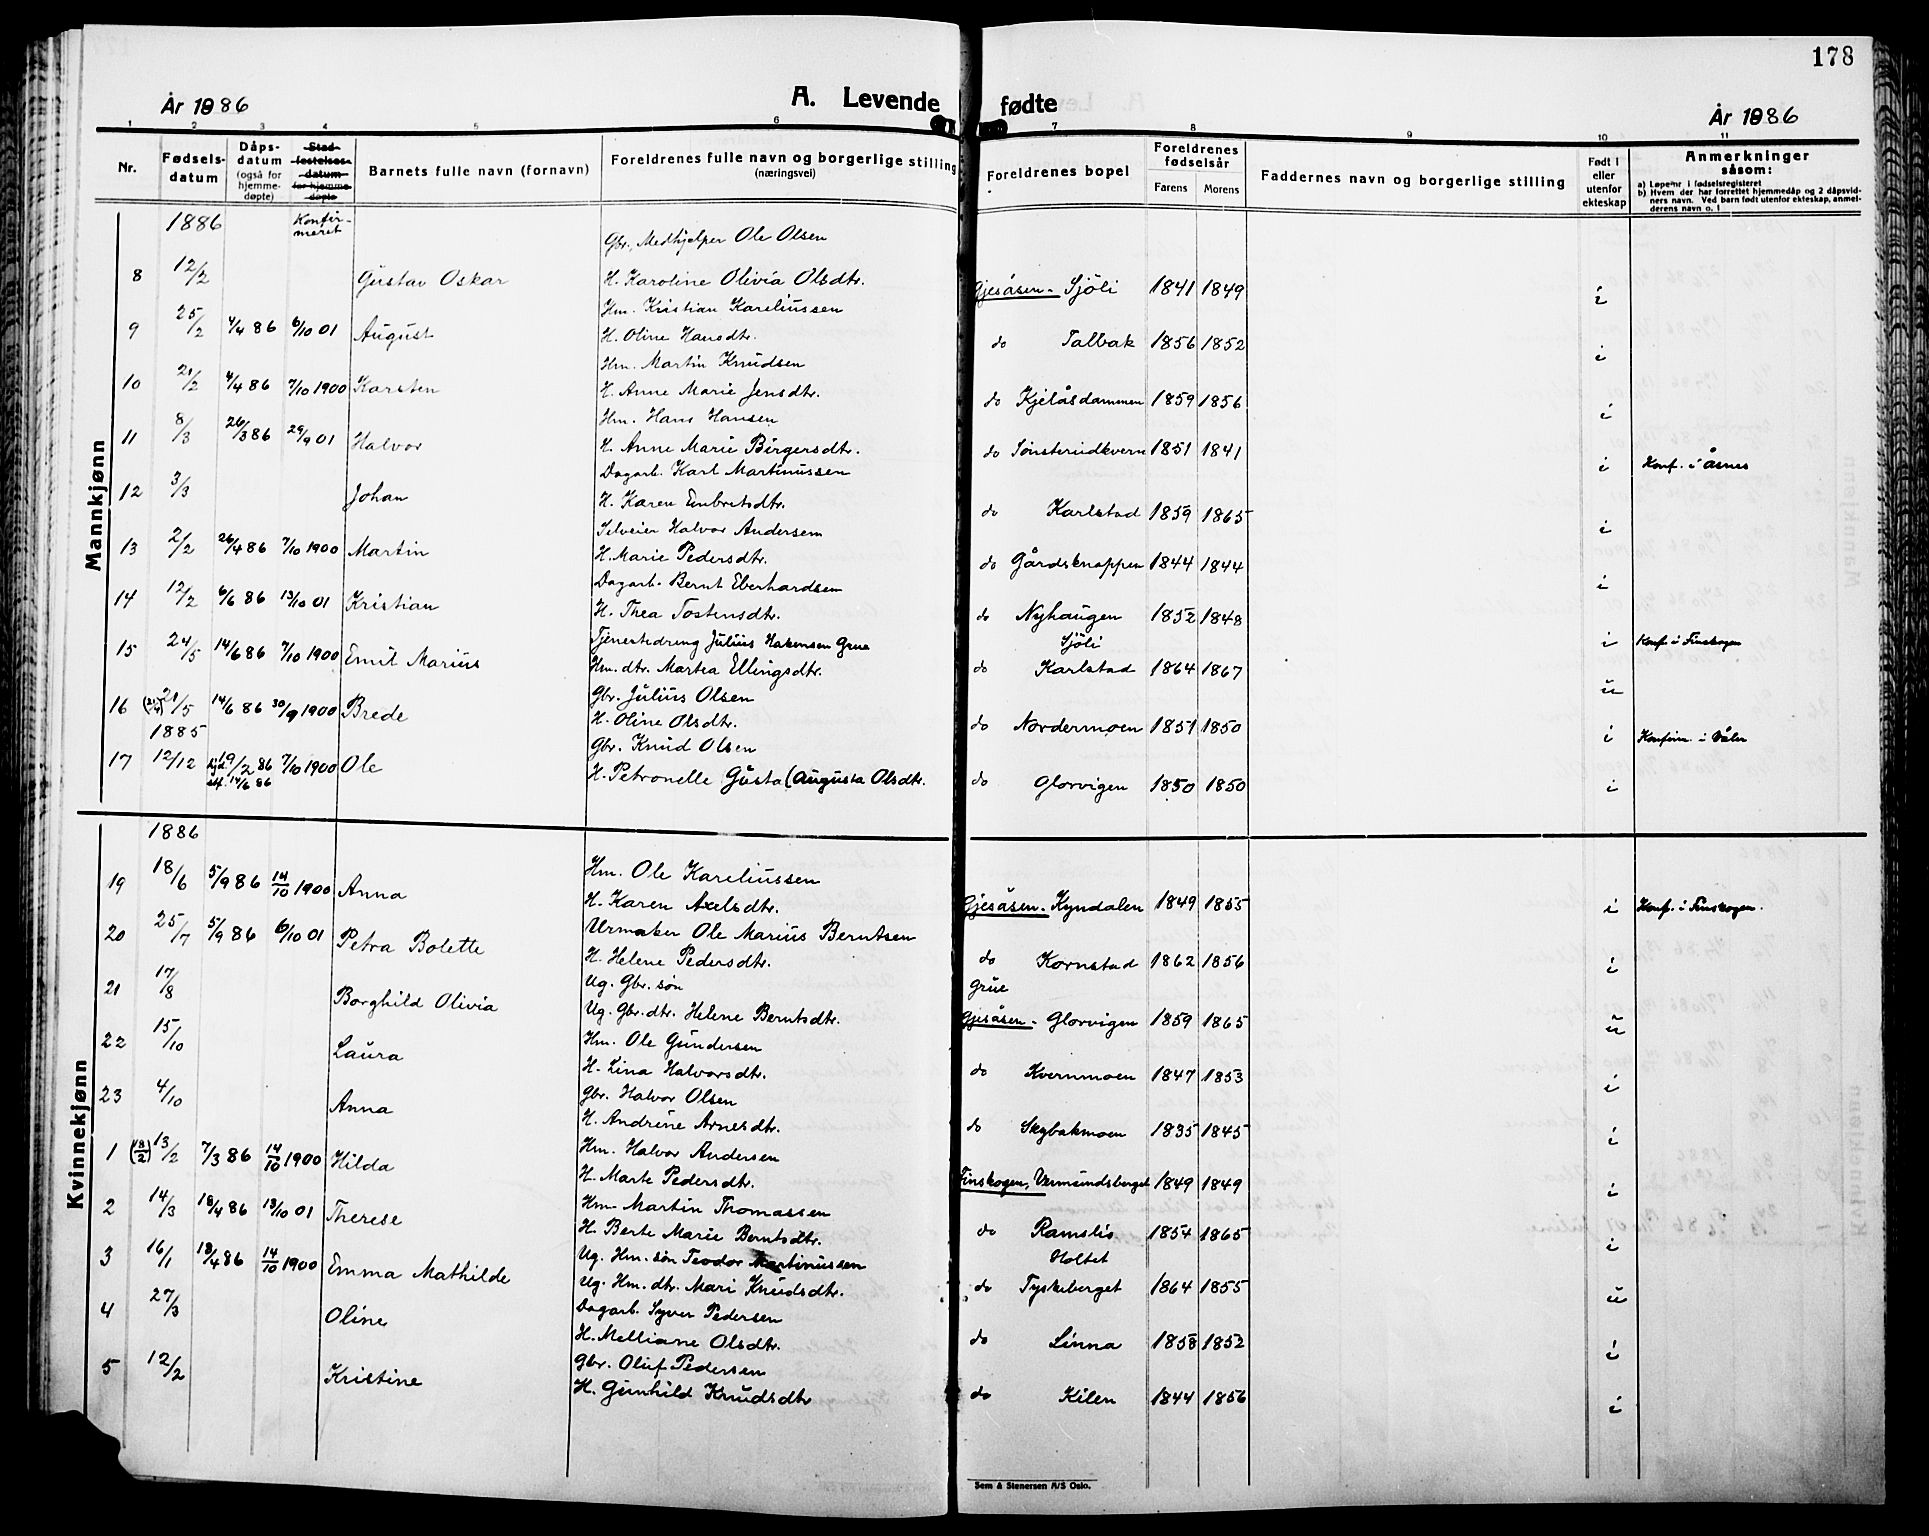 178
År 1886
A. Levende fødte
År 1886
1 2 3 4 5 6 7 8 9 10 11
Nr.
Fødsels-datum
Dåps-datum (også for hjemme-døpte)
Stad-festelses-datum for hjemme-døpte
Barnets fulle navn (fornavn)
Foreldrenes fulle navn og borgerlige stilling (næringsvei)
Foreldrenes bopel
Foreldrenes fødselsår
Farens Morens
Faddernes navn og borgerlige stilling
Født i eller utenfor ekteskap
Anmerkninger såsom:
a) Løpenr i fødselsregisteret
b) Hvem der har forrettet hjemmedåp og 2 dåpsvid-
ners navn. Ved barn født utenfor ekteskap, anmel-
derens navn o. l
Mannkjønn
1886 Konfir-meret
Gbr., Medhjelper Ole Olsen
8 12/2 Gustav Oskar H. Karoline Olivia Olsdtr. Gjesåsen - Sjöli 1841 1849 i
Hm. Kristian Kareliussen
9 25/2 4/4 86 6/10 01 August H. Oline Hansdtr. do Talbak 1856 1852 i
Hm. Martin Knudsen
10 21/2 4/4 86 7/10 1900 Karsten H. Anne Marie Jensdtr. do Kjelåsdammen 1859 1856 i
Hm. Hans Hansen
11 8/3 26/3 86 29/9 01 Halvor H. Anne Marie Birgersdtr. do Sönsterudkvern 1851 1841 i Konf. i Åsnes
Dagarb. Karl Martinussen
12 3/3 Johan H. Karen Embretsdtr. do Karlstad 1859 1865 i
Selveier Halvor Andersen
13 2/2 26/4 86 7/10 1900 Martin H. Marie Pedersdtr. do Gårdsknappen 1844 1844 i
Dagarb. Bernt Eberhardsen
14 12/2 6/6 86 13/10 01 Kristian H. Thea Tostensdtr. do Nyhaugen 1852 1848 i Konf. i Finskogen
Tjenestedreng Julius Hakensen Grue Sjöli
15 24/5 14/6 86 7/10 1900 Emil Marius Hm. dtr. Martea Ellingsdtr. do Karlstad 1864 1867 u
Gbr. Julius Olsen
16 21/5 14/6 86 30/9 1900 Brede H. Oline Olsdtr. do Nordermoen 1851 1850 i Konfirm. i Våler
1885 Gbr. Knud Olsen
17 12/12 hjd. 19/2 86 7/10 1900 Ole H. Petronelle Gusta (Augusta Olsdtr. do Glorvigen 1850 1850 i
stf. 14/6 86
Kvinnekjønn
1886
Hm. Ole Kareliussen
19 18/6 5/9 86 14/10 1900 Anna H. Karen Axelsdtr. Gjesåsen - Kyndalen 1849 1855 i Konf. i Finskogen.
Urmaker Ole Marius Berntsen
20 25/7 5/9 86 6/10 01 Petra Bolette H. Helene Pedersdtr. do Kornstad 1862 1856 i
Ug. Gbr. søn Grue
21 17/8 Borghild Olivia Ug. Gbr. dtr. Helene Berntsdtr. Gjesåsen - Glorvigen 1859 1865 u
Hm. Ole Gundersen
22 15/10 Laura H. Lina Halvorsdtr. do Kvernmoen 1847 1853 i
Gbr. Halvor Olsen
23 4/10 Anna H. Andrine Arnesdtr. do Skybakmoen 1835 1845 i
Hm. Halvor Andersen
1 (8/2) 13/2 7/3 86 14/10 1900 Hilda H. Marte Pedersdtr. Finskogen, Vermundsberget 1849 1849 i
Hm. Martin Thomassen
2 14/3 18/4 86 13/10 01 Therese H. Berte Marie Berntsdtr. do Ramslis 1854 1865 i
Ug. Hm. søn Teodor Martinussen Holtet
3 16/1 18/4 86 14/10 1900 Emma Mathilde Ug. Hm. dtr. Mari Knudsdtr. do Tyskeberget 1864 1855 u
Dagarb. Syver Pedersen
4 27/3 Oline H. Melliane Olsdtr. do Linna 1858 1852 i
Gbr. Oluf Pedersen
5 12/2 Kristine H. Gunhild Knudsdtr do Kilen 1844 1856 i
Sem & Stenersen A/S Oslo.